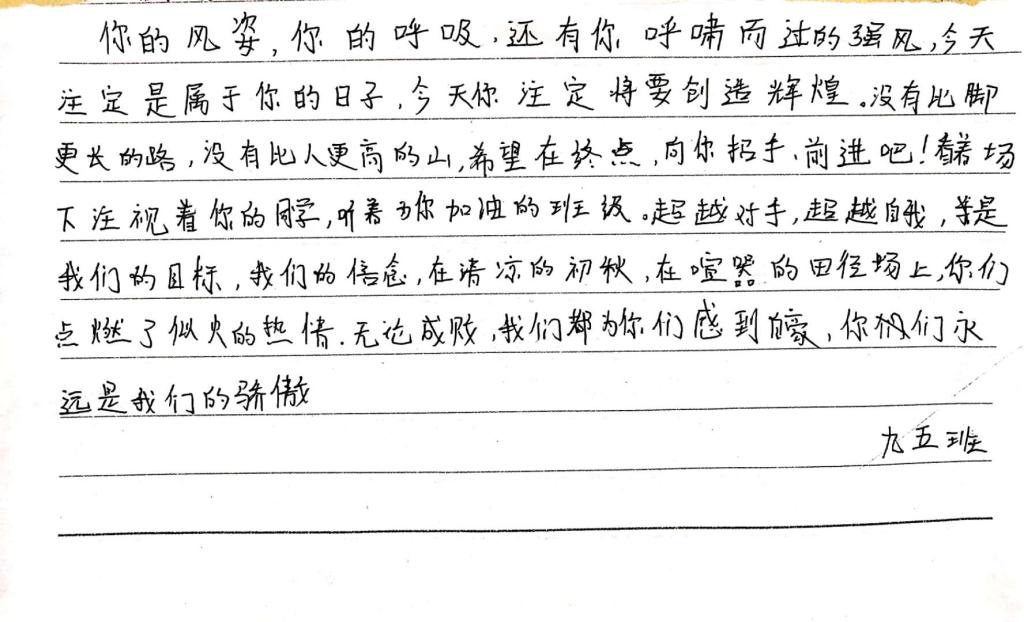 你的风姿,你的呼吸,还有你呼啸而过的强风,今天
注定是属于你的日子,今天你注定将要创造辉煌。没有比脚
更长的路,没有比人更高的山,希望在终点,向你招手、前进吧!看着场
下注视着你的同学,听着为你加油的班级。超越对手,超越自我,等是
我们的目标,我们的信念,在清凉的初秋,在喧嚣的田径场上,你们
点燃了似火的热情.无论成败,我们都为你们感到自豪,你们永
远是我们的骄傲
九五班